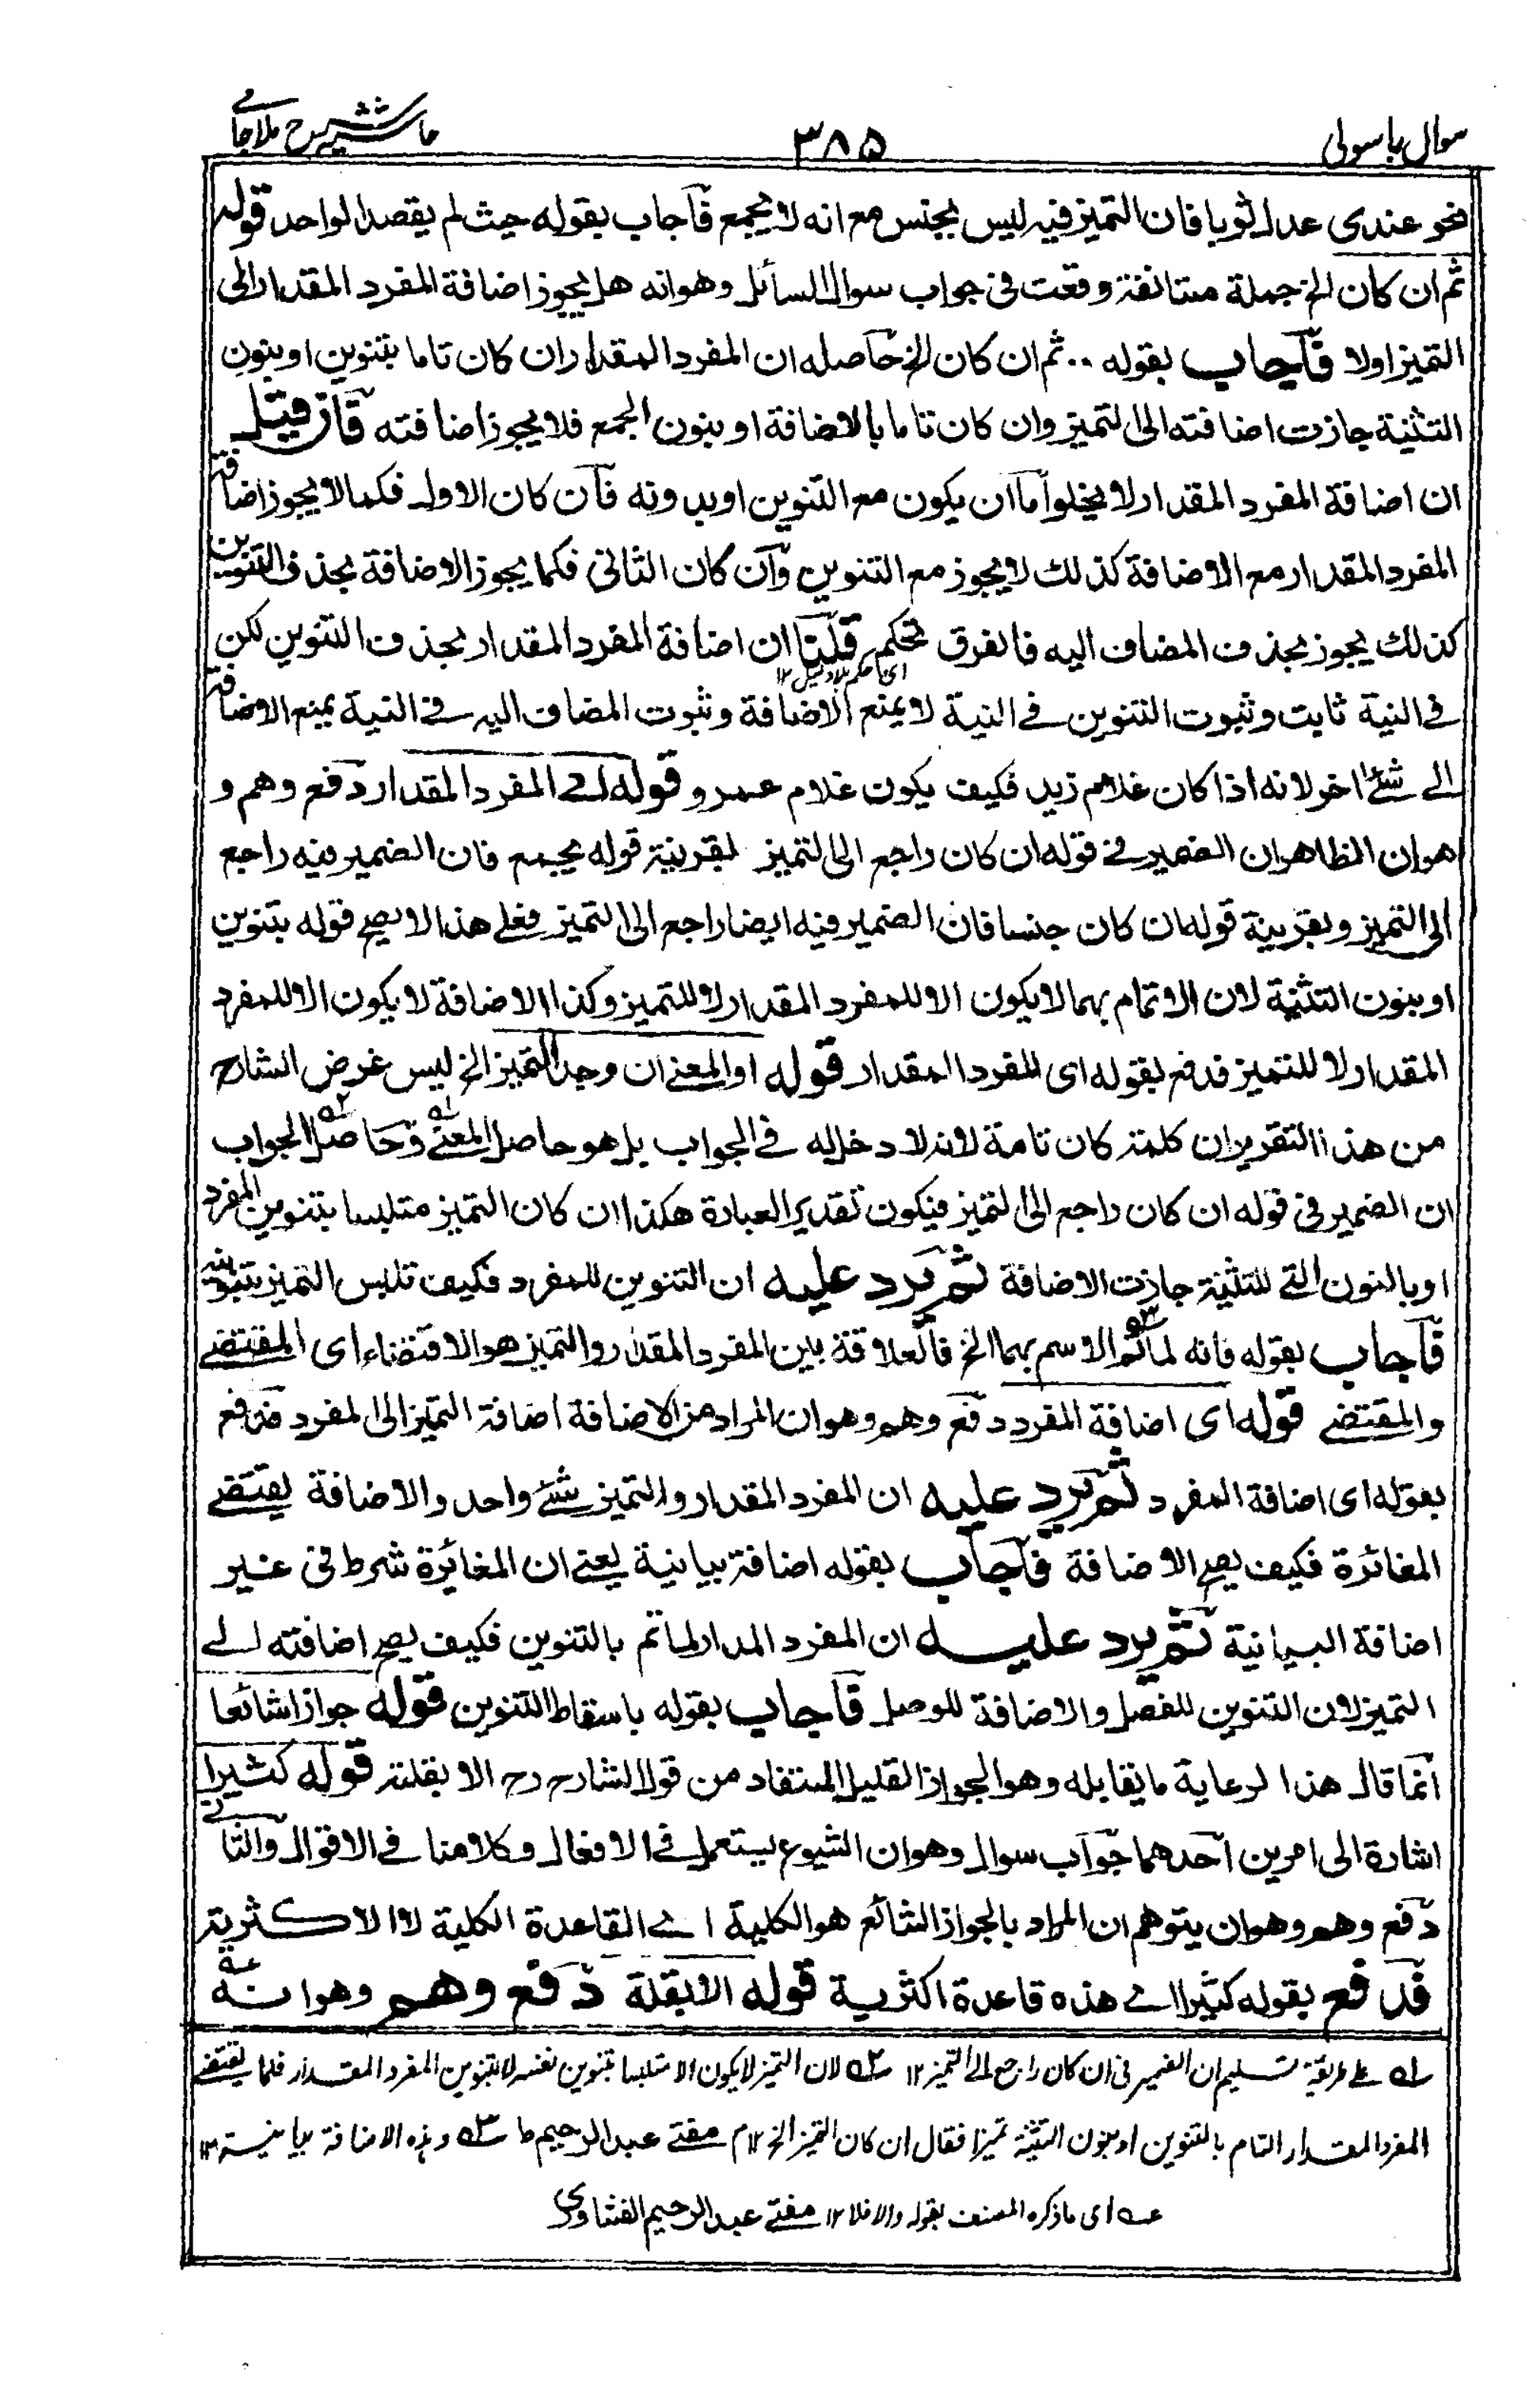 سوال باسولی
۳۸۵
حاشیہ شرح ملا جامے
نحو عندى عدل ثوبا فان التميز فيه ليس بجنس مع انه لا يجمع فآجاب بقوله حيث لم يقصد الواحد قوله
ثم ان كان الخ جملة مستانفة وقعت فى جواب سوال السائل وهو انه هل يجوز اضافة المفرد المقدار الى
التميز اولا فآجاب بقوله ٠٠ ثم ان كان الخ حآصله ان المفرد المقدار ان كان تاما بتنوين او بنون
التثنية جازت اضافته الى التميز وان كان تاما بالاضافة او بنون الجمع فلا يجوز اضافته فآن قيل
ان اضافة المفرد المقدار لا يخلوا آما ان يكون مع التنوين او بدونه فآن كان الاول فكما لا يجوز اضافة
المفرد المقدار مع الاضافة كذلك لا يجوز مع التنوين وآن كان الثانى فكما يجوز الاضافة بحذف التنوين
كذلك يجوز بحذف المضاف اليه فالفرق تحكم قلنا ان اضافة المفرد المقدار بحذف التنوين لكن
اى حكم بلا دليل ١٢
فى النية ثابت وثبوت التنوين فے النية لا يمنع الاضافة وثبوت المضاف اليه فے النية يمنع الاضافة
الے شئ اخر لانه اذا كان غلام زيد فكيف يكون غلام عمرو قوله اے المفرد المقدار دفع وهم و
هو ان الظاهر ان الضمير فے قوله ان كان راجع الى التميز لقرينة قوله يجمع فان الضمير فيه راجع
الى التميز وبقرينة قوله ان كان جنسا فان الضمير فيه ايضا راجع الى التميز فعلى هذا لا يصح قوله بتنوين
او بنون التثنية لان الاتمام بهما لا يكون الا للمفرد المقدار لا للتميز وكذا الاضافة لا يكون الا للمفرد
المقدار لا للتميز فدفع بقوله اى للمفرد المقدار قوله او المعنے ان وجد التميز الخ ليس غرض الشارح
من هذا التقرير ان كلمة كان تامة لانه لا دخل له فے الجواب بل هو حاصل المعنےٰ وحاصل الجواب
ان الضمير فى قوله ان كان راجع الى التميز فيكون تقدير العبارة هكذا ان كان التميز متلبسا بتنوين المفرد
او بالنون التے للتثنية جازت الاضافة ثم يرد عليه ان التنوين للمفرد فكيف تلبس التميز بتنوينه
فآجاب بقوله فانه لما تم الاسم بهما الخ فالعلاقة بين المفرد المقدار والتميز هو الاقتضاء اى المقتضے
والمقتضے قوله اى اضافة المفرد دفع وهم وهو ان المراد من الاضافة اضافة التميز الى المفرد فدفع
بقوله اى اضافة المفرد ثم يرد عليه ان المفرد المقدار والتميز شئے واحد والاضافة يقتضے
المغائرة فكيف يصح الاضافة فآجاب بقوله اضافة بيانية يعنے ان المغائرة شرط فى غير
اضافة البيانية ثم يرد عليه ان المفرد المدار لما تم بالتنوين فكيف يصح اضافته الے
التميز لان التنوين للفصل والاضافة للوصل فآجاب بقوله باسقاط التنوين قوله جوازا شائعا
انما قال هذا لرعاية ما يقابله وهو الجواز القليل المستفاد من قول الشارح رح الا بقلة قوله كثيرا
اشارة الى امرين آحدهما جواب سوال وهو ان الشيوع يستعمل فے الافعال وكلامنا فے الاقوال والثانے
دفع وهم وهو ان يتوهم ان المراد بالجواز الشائع هو الكلية اے القاعدة الكلية لا الاكثرية
فدفع بقوله كثيرا اے هذه قاعدة اكثرية قوله الا بقلة دفع وهم وهو انه
لے علے طريقة تسليم ان الضمير فى ان كان راجع الى التميز ١٢ لان التميز لا يكون الا متلبسا بتنوين نفسه لا بتنوين المفرد المقدار فلما يقتضے
المفرد المقدار التام بالتنوين او بنون التثنية تميزا فقال ان كان التميز الخ ١٢ م مفتے عبد الرحيم ط وهذه الاضافة بيانية ١٢
عه اى ما ذكره المصنف بقوله والا فلا ١٢ مفتے عبد الرحيم الفشاورى